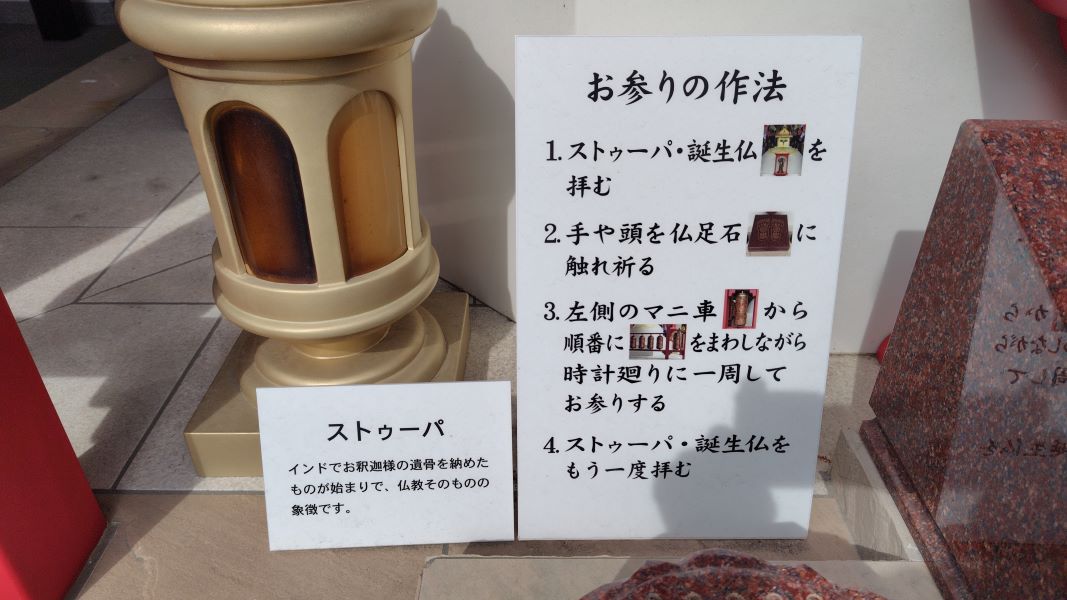 お参りの作法
1.ストゥーパ・誕生仏を
拝む
2.手や頭を仏足石に
触れ祈る
3.左側のマニ車から
順番にをまわしながら
時計廻りに一周して
お参りする
4.ストゥーパ・誕生仏を
もう一度拝む
ストゥーパ
インドでお釈迦様の遺骨を納めた
ものが始まりで、仏教そのものの
象徴です。